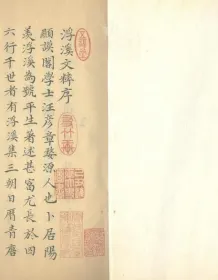 浮溪文粹序
顯謨閣學士汪彥章婺源人也卜居陽
羨浮溪為號平生著述甚富尤長於四
六行于世者有浮溪集三朝日曆青唐